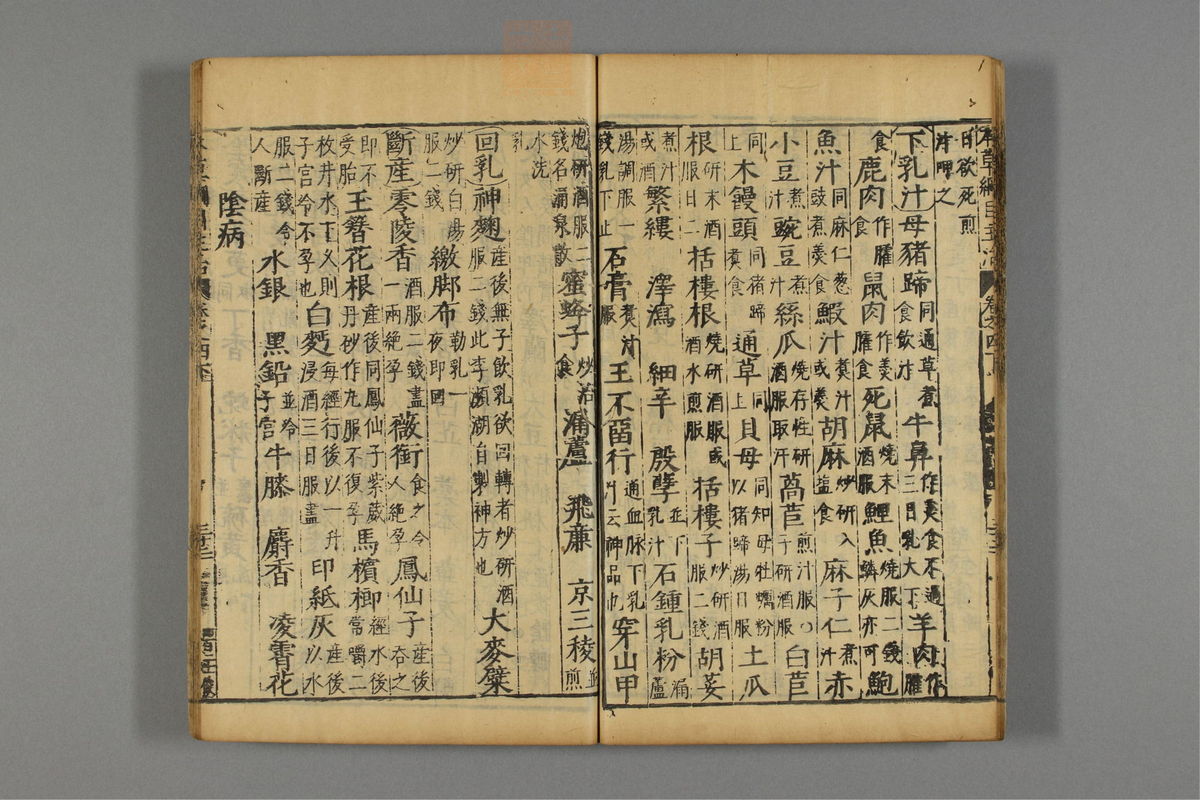 日欲死煎
汁呷之
下乳汁母豬蹄同通草煮食飲汁牛鼻作羹食不過三日乳大下羊肉作臛
食鹿肉作臛食鼠肉作羹臛食死鼠燒末酒服鯉魚燒服二錢鱗灰亦可鮑
魚汁同麻仁葱豉煮羹食鰕汁煮汁或羹胡麻炒研入塩食麻子仁煮汁赤
小豆煮汁豌豆煮汁絲瓜燒存性研酒服取汗萵苣煎汁服○子研酒服白苣
同上木饅頭同猪蹄煮食通草同上貝母同知母牡蠣粉以猪蹄湯日服土瓜
根研末酒服日二栝樓根燒研酒服或酒水煎服栝樓子炒研酒服二錢胡荽
煮汁或酒蘩縷 澤瀉 細辛 殷孽並下乳汁石鍾乳粉漏蘆
湯調服一錢乳下止石膏煮汁服王不留行通血脉下乳汁云神品也穿山甲
炮研酒服二錢名涌泉散蜜蜂子炒治食漏蘆 飛廉 京三稜並煎
水洗乳
回乳神麴產後無子飲乳欲回轉者炒研酒服二錢此李瀕湖自製神方也大麥糵
炒研白湯服二錢繳脚布勒乳一夜即回
斷産零陵香酒服二錢盡一兩絕孕薇銜食之令人絕孕鳳仙子產後吞之
即不受胎玉簪花根產後同鳳仙子紫葳丹砂作丸服不復孕馬檳榔經水後常嚼二
枚井水下久則子宮冷不孕也白麪每經行後以一升浸酒三日服盡印紙灰產後以水
服二錢令人斷産水銀 黑鉛並冷子宮牛膝 麝香 凌霄花
陰病